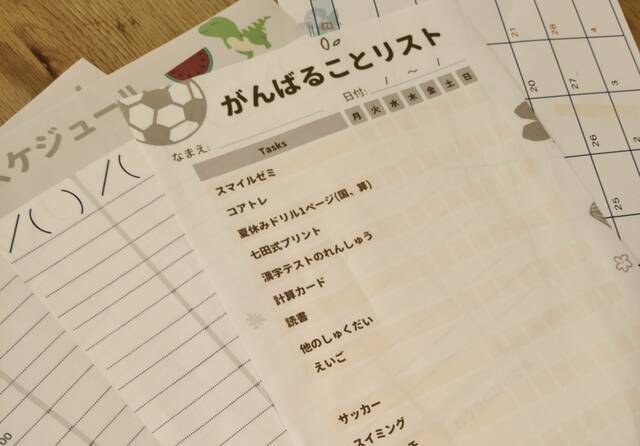 がんばることリスト
日付: / ～ /
なまえ:
Tasks 月 火 水 木 金 土 日
スマイルゼミ
コアトレ
夏休みドリル1ページ(国、算)
七田式プリント
漢字テストのれんしゅう
計算カード
読書
他のしゅくだい
えいご
サッカー
スイミング
ケジュー
/( ) /(
21 28 4
20 27
26 2
25